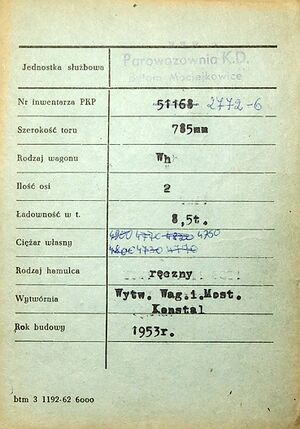 Jednostka służbowa
PKP
Parowozownia K.D.
Bytom Maciejkowice
Nr inwentarza PKP 51168 2772-6
Szerokość toru 785mm
Rodzaj wagonu Wh
Ilość osi 2
Ładowność w t. 8,5t.
4800 4770 4820 4750
Ciężar własny 4800 4730 4770
Rodzaj hamulca ręczny
Wytwórnia Wytw. Wag.i.Most.
Konstal
Rok budowy 1953r.
btm 3 1192-62 6000